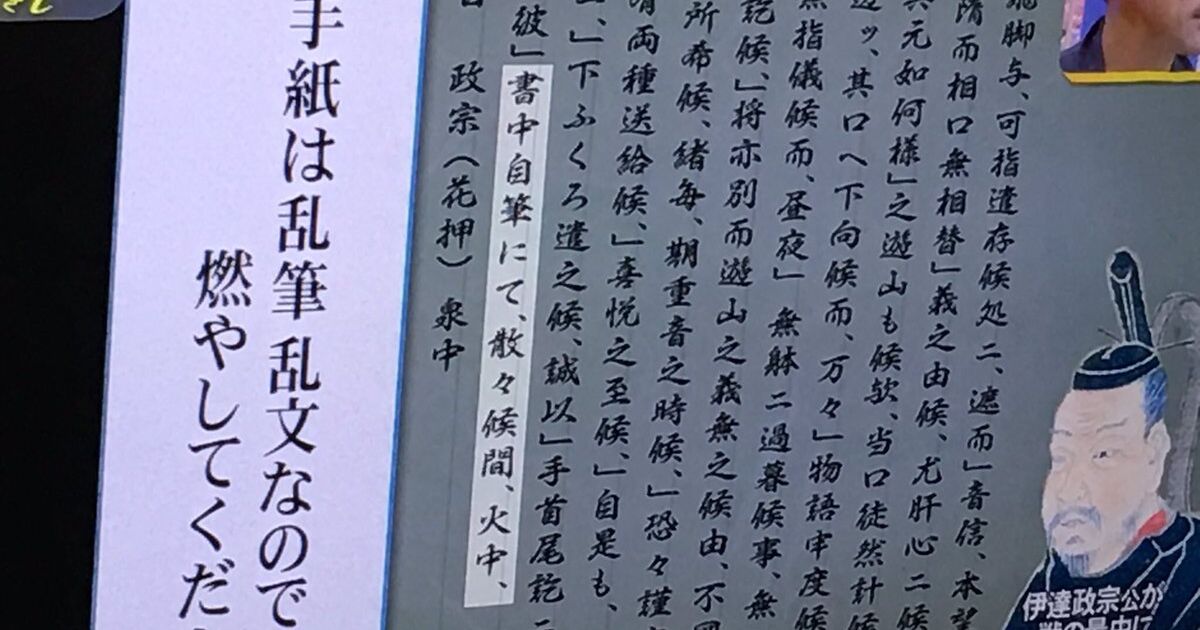 飛脚与、可指遣存候処ニ、遮而」音信、本望
隋而相口無相替」義之由候、尤肝心ニ候
其元如何様」之遊山も候欤、当口徒然計候
辺ッ、其口へ下向候而、万々」物語申度候
無指儀候而、昼夜」無躰ニ過暮候事、無
訖候、」将亦別而遊山之義無之候由、不
所希候、緒毎、期重音之時候、」恐々謹
両種送給候、」喜悦之至候、」自是も、
、」下ふくろ遣之候、誠以」手首尾訖ニ
彼」書中自筆にて、散々候間、火中、
政宗(花押) 泉中
手紙は乱筆乱文なので
燃やしてくだ
伊達政宗公が
戦の最中に